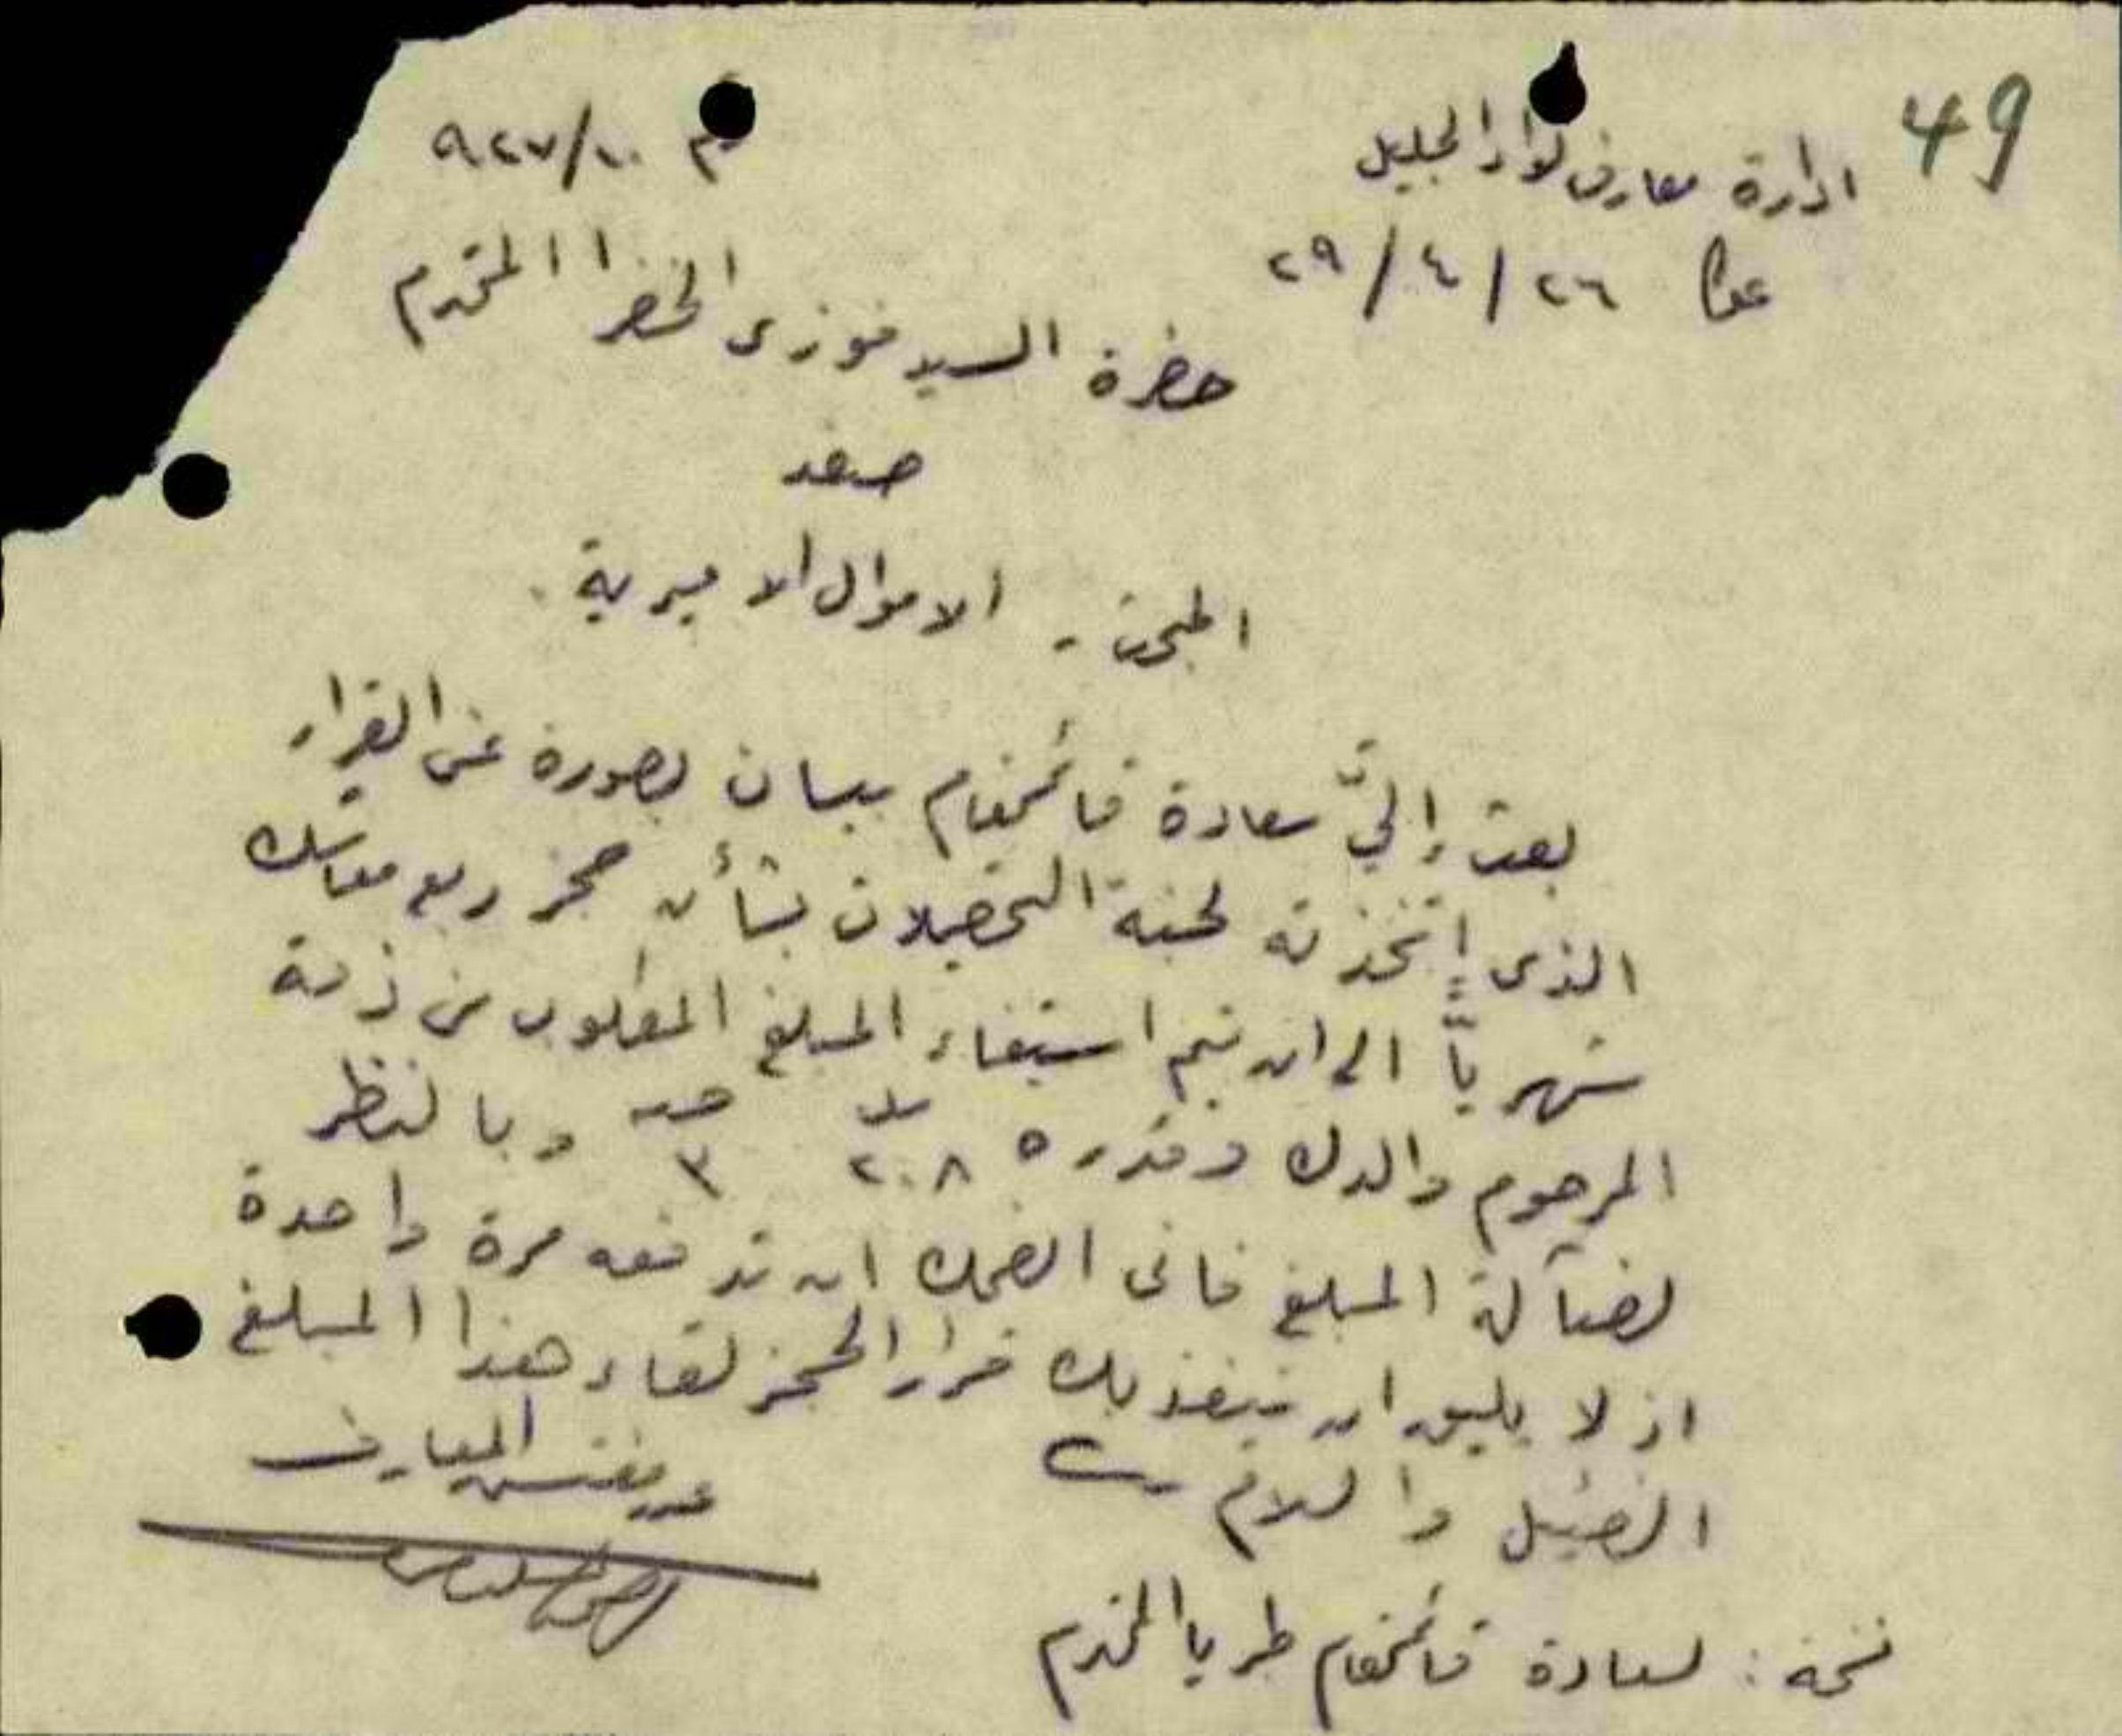 49
ادارة معارف لواء الجليل
م ١٠/٩٢٧
عكا ٢٦/٤/٢٩
حضرة السيد فوزي الخضرا المحترم
صفد
المبحث - الاموال الاميرية
بعث إليَّ سعادة قائمقام بيسان بصورة عن القرار
الذي إتخذته لجنة التحصيلات بشأن حجز ربع معاشك
شهرياً الى ان يتم استيفاء المبلغ المطلوب من ذمة
المرحوم والدك وقدره ٢٠٨ مل ٣ جنيه وبالنظر
لضآلة المبلغ فاني انصحك ان تدفعه مرة واحدة
اذ لا يليق ان ينفذ بك قرار الحجز لقاء هذا المبلغ
الضئيل والسلام
مفتش المعارف
نسخة: لسعادة قائمقام طبريا المحترم